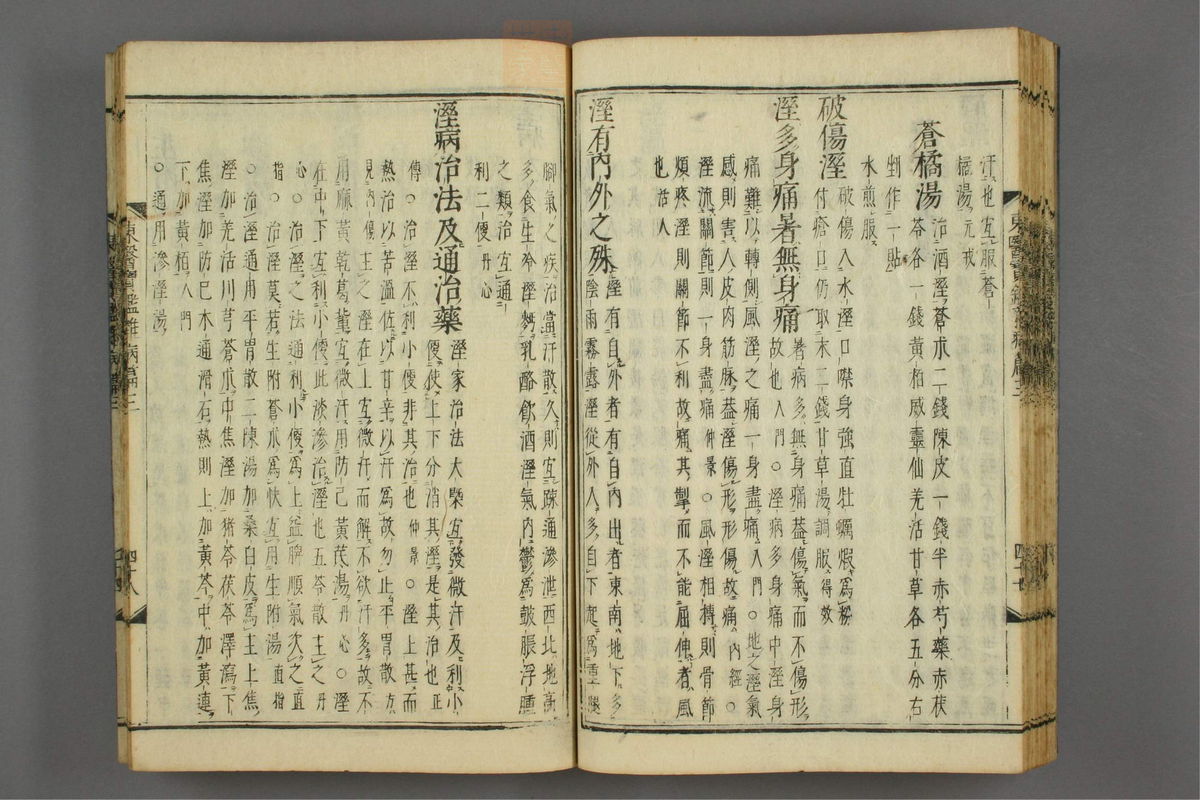 汗也宜服蒼
橘湯元戎
蒼橘湯 治酒溼蒼朮二錢陳皮一錢半赤芍藥赤茯
苓各一錢黃栢威靈仙羌活甘草各五分右
剉作一貼
水煎服
破傷溼 破傷人水溼口噤身強直牡蠣煆爲粉
付瘡口仍取末二錢甘草湯調服得效
溼多身痛暑無身痛 暑病多無身痛葢傷氣而不傷形
故也入門○溼病多身痛中溼身
痛難以轉側風溼之痛一身盡痛入門○地之溼氣
感則害人皮肉筋脉葢溼傷形形傷故痛內經○
溼流關節則一身盡痛仲景○風溼相摶則骨節
煩疼溼則關節不利故痛其掣而不能屈伸者風
也活人
溼有內外之殊 溼有自外者有自內出者東南地下多
陰雨霧露溼從外人多自下起爲重腿
脚氣之疾治當汗散久則宜疎通滲泄西北地高
多食生冷溼麪乳酪飮酒溼氣內鬱爲鼓脹浮腫
之類治宜通
利二便丹心
溼病治法及通治藥 溼家治法大槩宜發微汗及利小
便使上下分消其溼是其治也正
傳○治溼不利小便非其治也仲景○溼上甚而
熱治以苦溫佐以甘辛以汗爲故勿止平胃散方
見內傷主之溼在上宜微汗而解不欲汗多故不
用麻黃乾葛輩宜微汗用防己黃芪湯丹心○溼
在中下宜利小便此淡滲治溼也五苓散主之丹
心○治溼之法通利小便爲上益脾順氣次之直
指○治溼莫若生附蒼朮爲快宜用生附湯直指
○治溼通用平胃散二陳湯加桑白皮爲主上焦
溼加羌活川芎蒼朮中焦溼加猪苓茯苓澤瀉下
焦溼加防巳木通滑石熱則上加黃芩中加黃連
下加黃栢入門
○通用滲溼湯